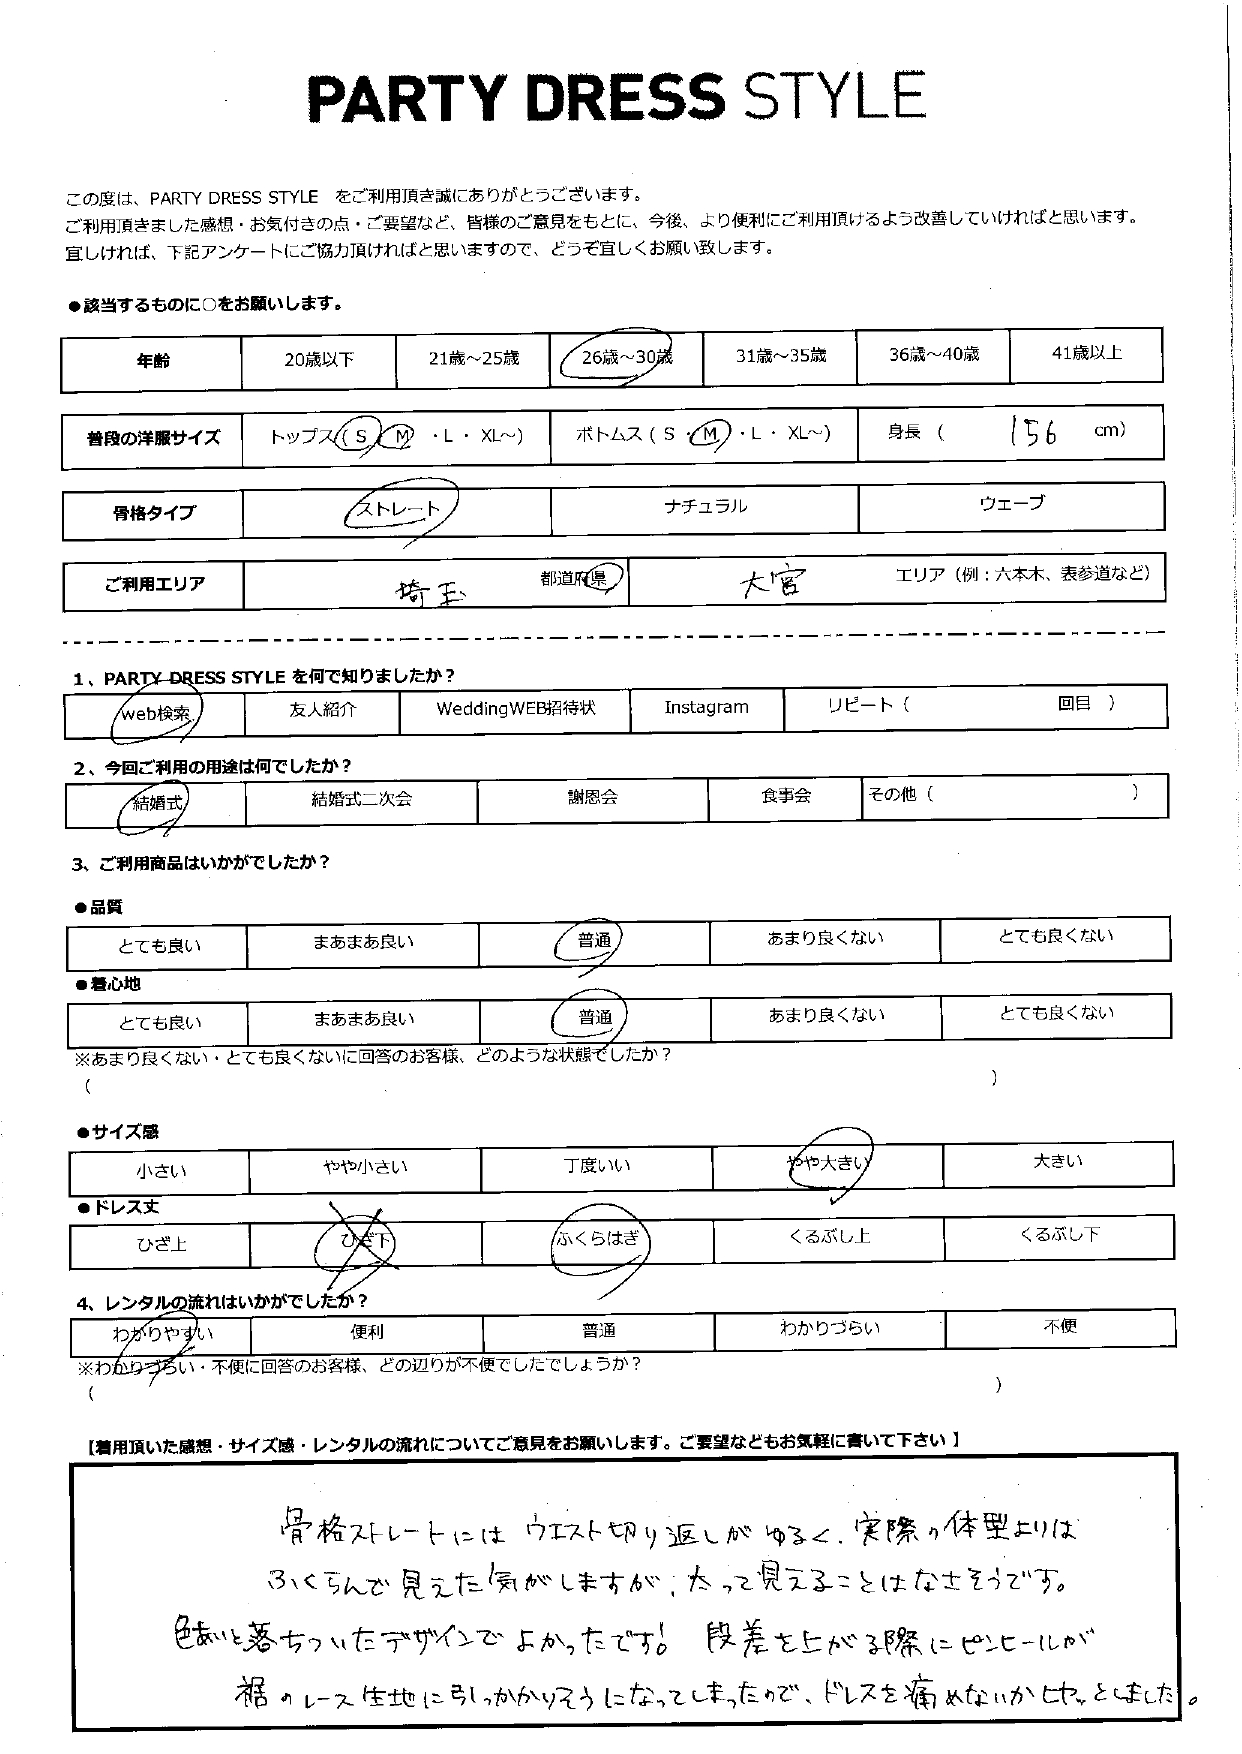 PARTY DRESS STYLE
この度は、PARTY DRESS STYLE をご利用頂き誠にありがとうございます。
ご利用頂きました感想・お気付きの点・ご要望など、皆様のご意見をもとに、今後、より便利にご利用頂けるよう改善していければと思います。
宜しければ、下記アンケートにご協力頂ければと思いますので、どうぞ宜しくお願い致します。
●該当するものに○をお願いします。
年齢 20歳以下 21歳～25歳 26歳～30歳 31歳～35歳 36歳～40歳 41歳以上
普段の洋服サイズ トップス ( S ・ M ・L・ XL～) ボトムス ( S ・ M ・L・ XL～) 身長 ( 156 cm)
骨格タイプ ストレート ナチュラル ウェーブ
ご利用エリア 埼玉 都道府県 大宮 エリア（例：六本木、表参道など）
1、PARTY DRESS STYLE を何で知りましたか？
web検索 友人紹介 WeddingWEB招待状 Instagram リピート（ 回目 ）
2、今回ご利用の用途は何でしたか？
結婚式 結婚式二次会 謝恩会 食事会 その他（ ）
3、ご利用商品はいかがでしたか？
●品質
とても良い まあまあ良い 普通 あまり良くない とても良くない
●着心地
とても良い まあまあ良い 普通 あまり良くない とても良くない
※あまり良くない・とても良くないに回答のお客様、どのような状態でしたか？
（ ）
●サイズ感
小さい やや小さい 丁度いい やや大きい 大きい
●ドレス丈
ひざ上 ひざ下 ふくらはぎ くるぶし上 くるぶし下
4、レンタルの流れはいかがでしたか？
わかりやすい 便利 普通 わかりづらい 不便
※わかりづらい・不便に回答のお客様、どの辺りが不便でしたでしょうか？
（ ）
【着用頂いた感想・サイズ感・レンタルの流れについてご意見をお願いします。ご要望などもお気軽に書いて下さい 】
骨格ストレートには ウエスト切り返しが ゆるく、実際の体型よりは
ふくらんで見えた気がしますが、たって見えることはなさそうです。
色あいと落ちついたデザインでよかったです! 段差を上がる際にピンヒールが
裾のレース生地に引っかかりそうになってしまったので、ドレスを痛めないかヒヤッとしました。